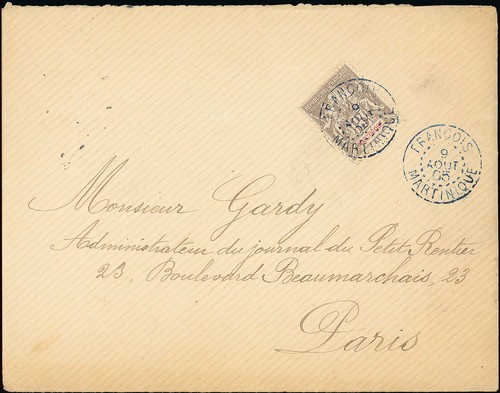 FRANÇOIS
9
AOUT
05
MARTINIQUE
Monsieur Gardy
Administrateur du journal du Petit Rentier
23, Boulevard Beaumarchais, 23
Paris